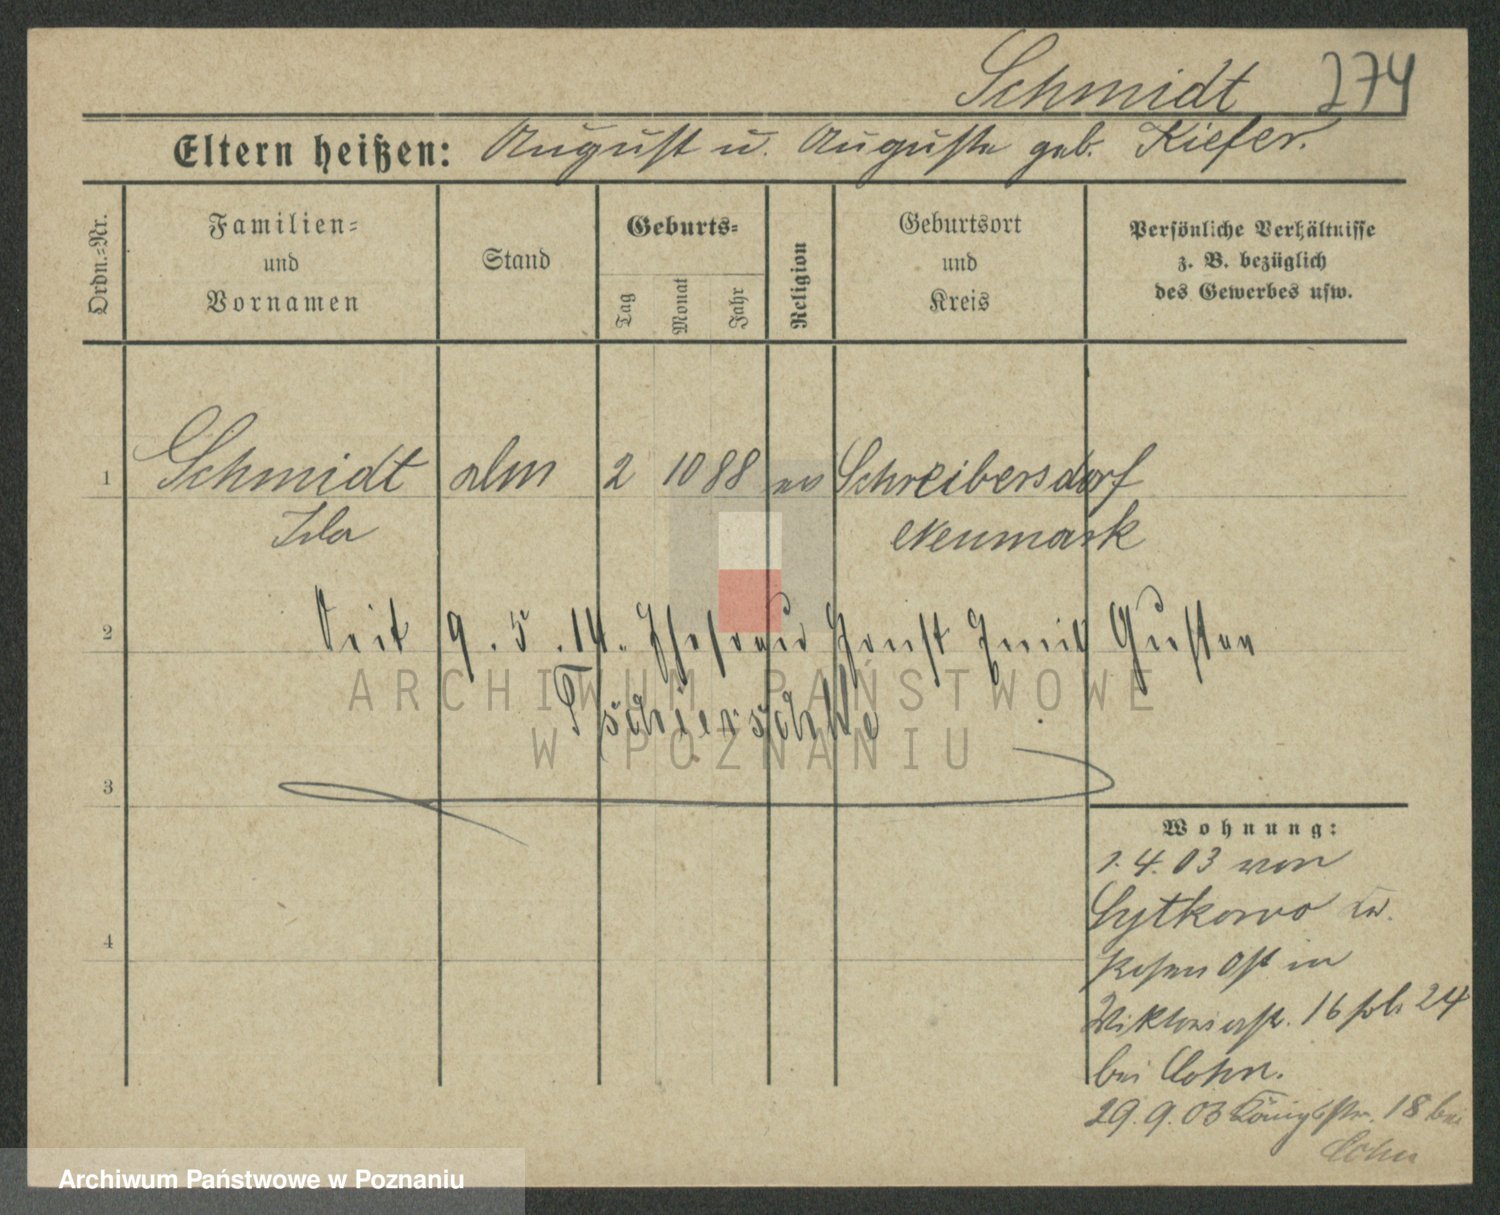 Schmidt 274
Eltern heißen: August u. Auguste geb. Kiefer.
Ordn.-Nr.
Familien-
und
Vornamen
Stand
Geburts-
Tag
Monat
Jahr
Religion
Geburtsort
und
Kreis
Persönliche Verhältnisse
z. B. bezüglich
des Gewerbes usw.
1 Schmidt 2 10 88 ev Schreibersdorf
Ida Neumark
2 Seit 9.5.14. Ehefrau Ernst Emil Gustav
ARCHIWUM PAŃSTWOWE
Tschierschke
W POZNANIU
3
Wohnung:
1.4.03 von
Lytkowo
4
Posen Ost in
Viktoriastr. 16 24
bei Cohn.
29.9.03 Königstr. 18 bei
Cohn
Archiwum Państwowe w Poznaniu